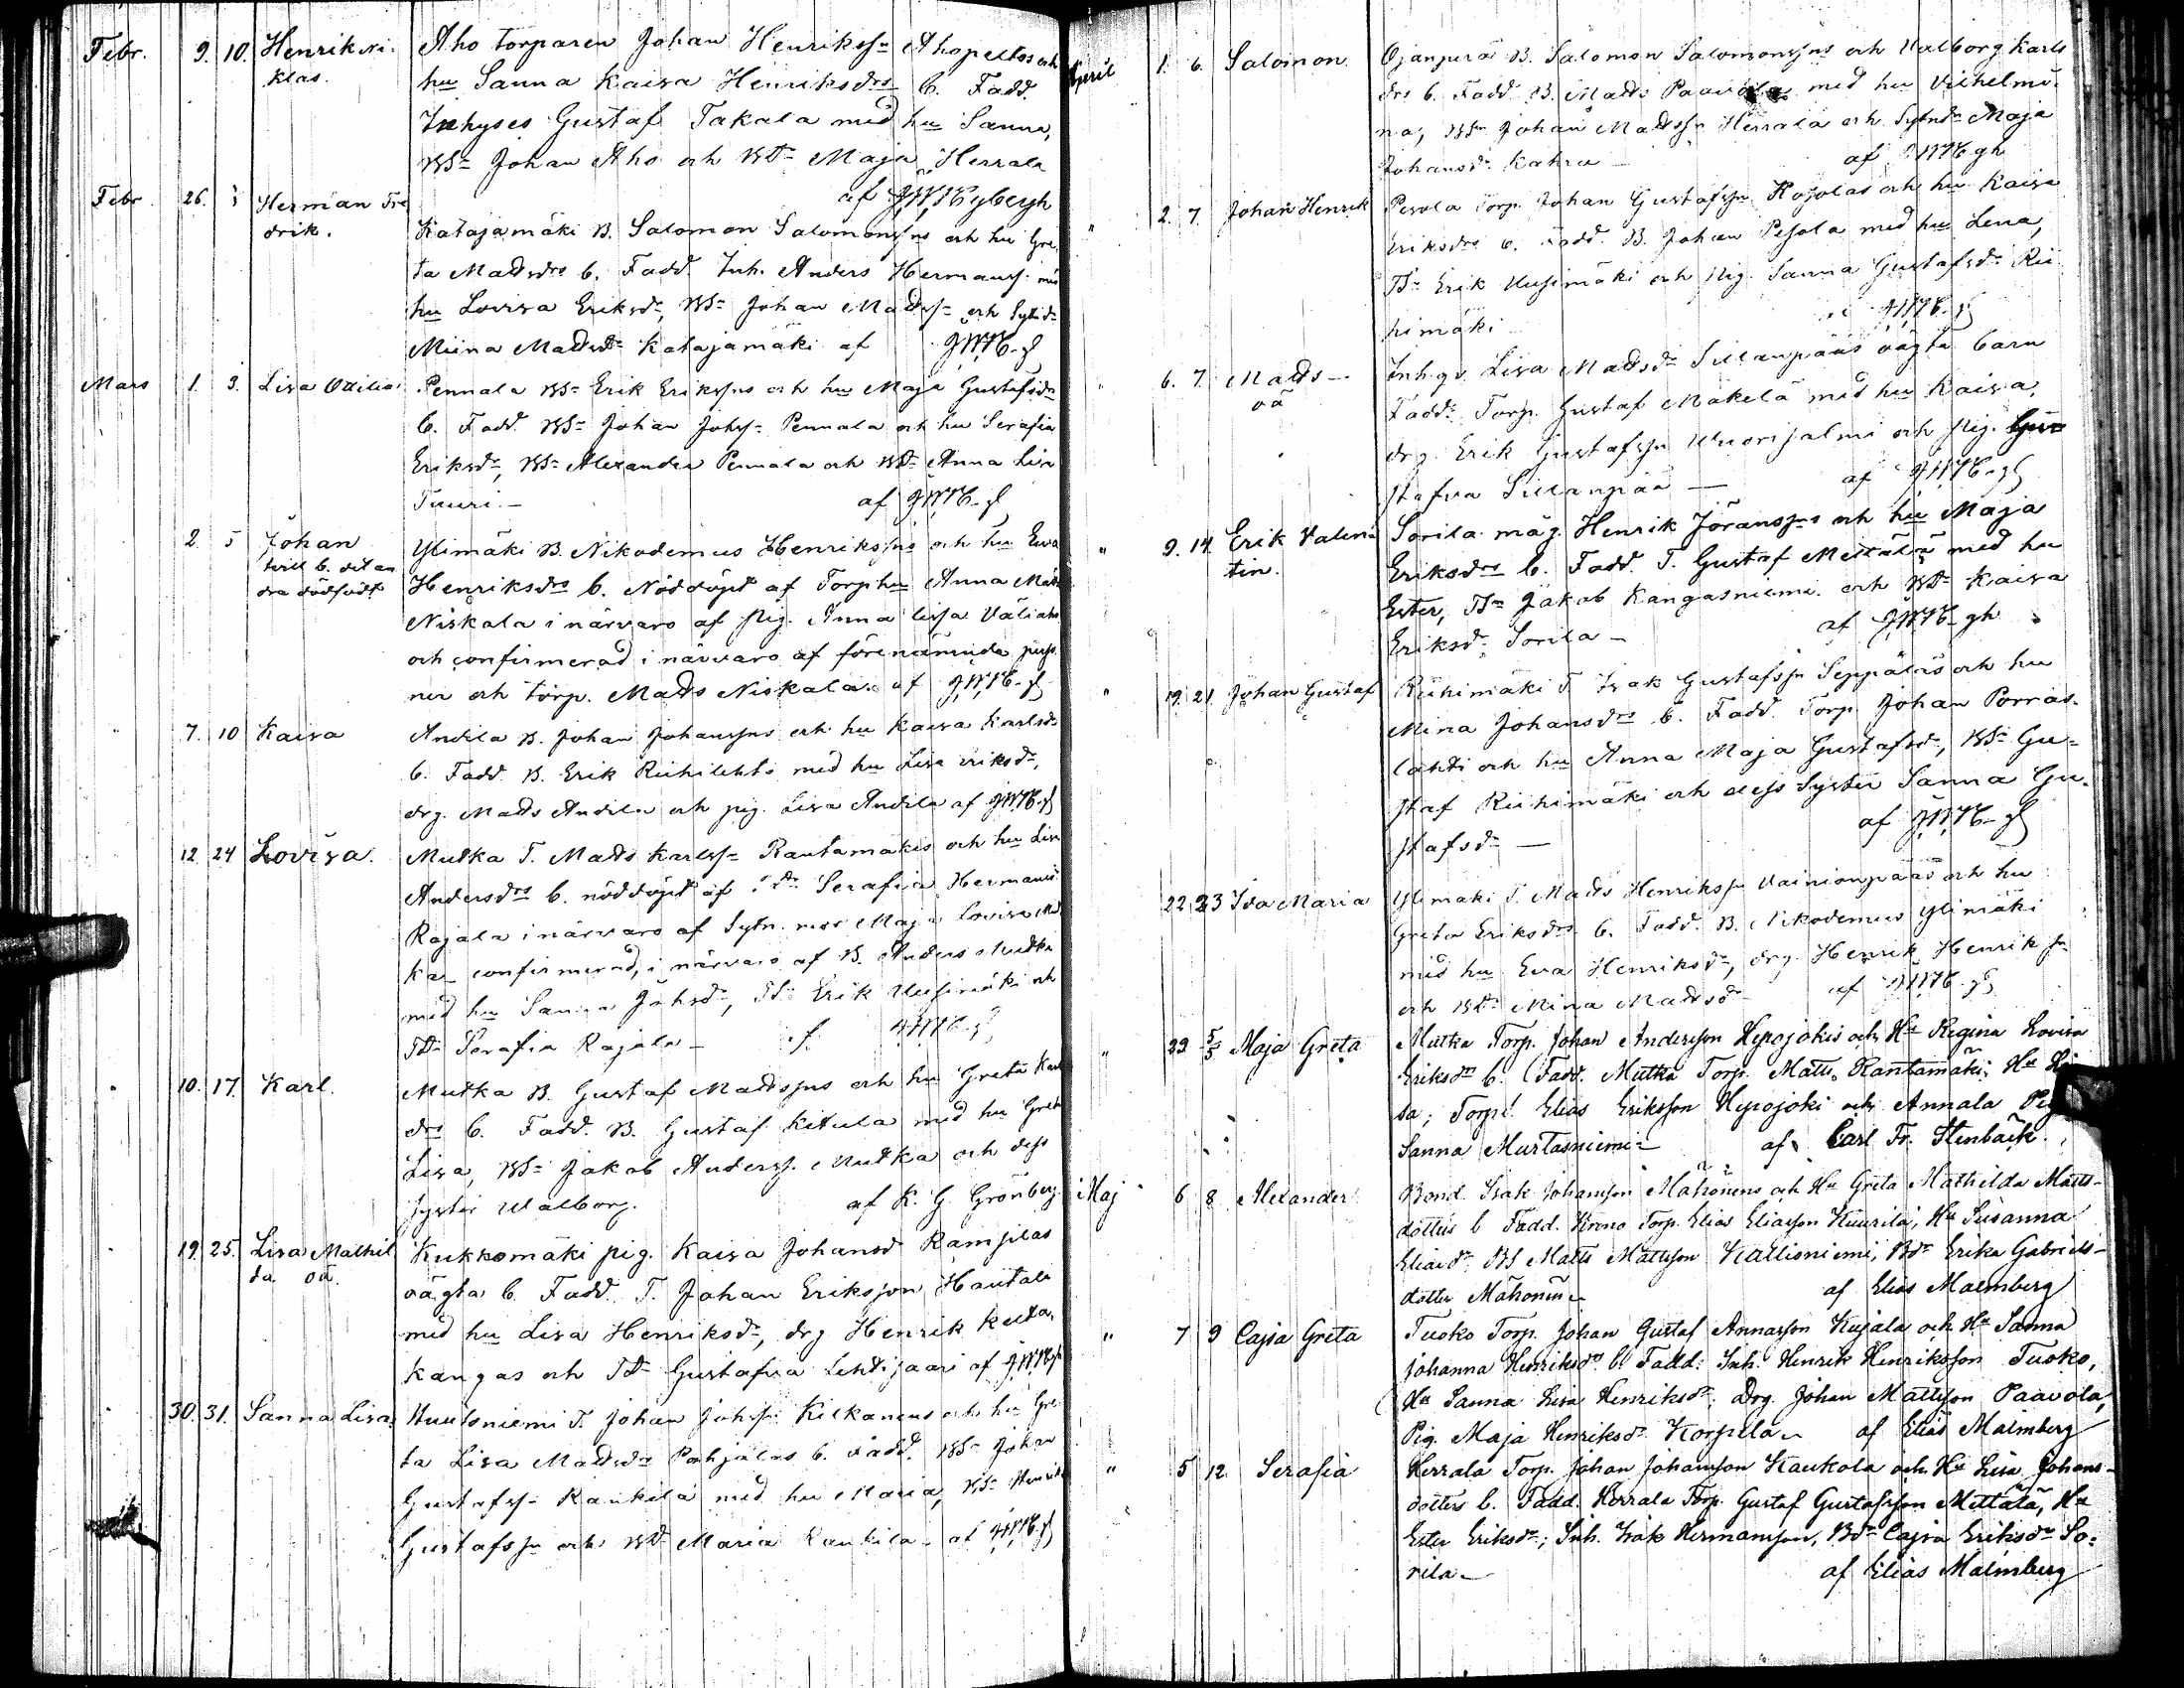 Febr. 9. 10. Henrik Ni- Aho torparen Johan Henrikss- Ahopeltos och
klas. hu Sanna Kaisa Henriksdrs b. Fadd.
Inhyses Gustaf Takala med hu Sanna,
BS- Johan Aho och BD- Maja Herrala
af
Febr. 26. Herman Fre
drik. Katajamäki B. Salomon Salomonssns och hu Gre
ta Mattsdrs b. Fadd. Inh. Anders Hermanss.
hu Lovisa Eriksdr, BS- Johan Matss- och
Miina Mattsdr Katajamäki af
Mars 1. 3. Lisa Ottilia Pennala BS- Erik Erikssns och hu Maja Gustafsdrs
b. Fadd. BS- Johan Johss- Pennala och hu Serafia
Eriksdr, BS- Alexander Pennala och BD- Anna Lisa
Tuuri.- af
2. 5 Johan Ylimäki B. Nikodemus Henrikssns och hu Eva
tvill b. det an Henriksdrs b. Nöddöpt af Torp hu Anna
dra dödfödt Niskala i närvaro af Pig. Anna Lisa
och confirmerad i närvaro af förenämnda perso
ner och torp. Matts Niskala. af
7. 10 Kaisa Andila B. Johan Johanssns och hu Kaisa Karlsdr
b. Fadd. B. Erik Riihilehto med hu Lisa Eriksdr,
drg. Matts Andila och pig. Lisa Andila af
12. 24 Lovisa. Mutka T. Matts Karlss- Rantamäkis och hu Lisa
Andersdrs b. nöddöpt af Serafia Hermans
Rajala i närvaro af Maja Lovisa
confirmerad, i närvaro af B. Anders Mutka
med hu Sanna Johsdr, Erik Uusimäki och
Serafia Rajala -
10. 17. Karl. Mutka B. Gustaf Mattssns och hu Greta Karls
drs b. Fadd. B. Gustaf Kitula med hu Greta
Lisa, BS- Jakob Anderss. Mutka och dess
syster Walborg. af K. G. Grönberg.
19. 25. Lisa Mathil Kukkomäki pig. Kaisa Johansd. Ramsilas
da oä. oägta b. Fadd. T. Johan Eriksson Hautala
med hu Lisa Henriksdr, drg Henrik Keuta
kangas och TD- Gustafva Lehtisaari af
30. 31. Sanna Lisa. T. Johan Johss. Kilkanens och hu Gre
ta Lisa Mattsdr Pohjalas b. Fadd. BS- Johan
Gustafss- Rankila med hu Maria, BS- Henrik
Gustafssn och BD- Maria Rankila - af
April 1. 6. Salomon. Ojanperä B. Salomon Salomonssns och Walborg Karls
drs b. Fadd. B. Matts Paavola med hu Vilhelmi-
na, BSn Johan Mattssn Herrala och Maja
Johansdr Kahra - af
" 2. 7. Johan Henrik Pesola Torp. Johan Gustafssn Kojolas och hu Kaisa
Eriksdrs b. Fadd. B. Johan Pesola med hu Lena,
Erik Uusimäki och Pig. Sanna Gustafsdr Rii
himäki
" 6. 7. Matts - Inh. qv. Lisa Mattsdr Sillanpääs oägta barn
oä Fadd. Torp. Gustaf Mäkelä med hu Kaisa,
drg. Erik Gustafssn Wuorisalmi och Pig. Gu-
stafva Sillanpää - af
" 9. 14. Erik Valen- Sorila måg. Henrik Jöranssns och hu Maja
tin. Eriksdrs b. Fadd. T. Gustaf Mettälä med hu
Ester, TSn Jakob Kangasniemi och BD- Kaisa
Eriksdr Sorila - af
" 19. 21. Johan Gustaf Riihimäki T. Isak Gustafssn Seppäläs och hu
Mina Johansdrs b. Fadd. Torp. Johan Porras-
lahti och hu Anna Maja Gustafsdr, BS- Gu-
staf Riihimäki och dess Syster Sanna Gu-
stafsdr - af
22. 23 Ida Maria Ylimäki T. Matts Henrikssn Vainionpääs och hu
Greta Eriksdrs b. Fadd. B. Nikodemus Ylimäki
med hu Eva Henriksdr, drg. Henrik Henrikssn
och BD- Mina Mattsdr af
" 29 5/5 Maja Greta Mutka Torp. Johan Andersson Hypojokis och Hu Regina Lovisa
Eriksdr b. Fadd. Mutka Torp. Matts Rantamäki, Hu
sa; Torps. Elias Eriksson Hypojoki och Annala
Sanna Murtasniemi- af Carl Fr. Stenbäck.
Maj 6 8. Alexander Bond. Isak Johansson Mähönens och Hu Greta Mathilda Matts-
dotters b Fadd. Torp. Elias Eliasson Kuurila, Hu Susanna
Eliasdr BS Matts Mattsson Kallioniemi, BDr Erika Gabriels-
dotter Mähönen af Elias Malmberg
" 7 9 Cajsa Greta Tuoko Torp. Johan Gustaf Annasson Kujala och Hu Sanna
Johanna Henriksdr b. Fadd: Inh. Henrik Henriksson Tuoko,
Hu Sanna Lisa Henriksdr; Drg. Johan Mattsson Paavola,
Pig. Maja Henriksdr Korpela af Elias Malmberg
" 5 12. Serafia Herrala Torp. Johan Johansson Kaukola och Hu Lisa Johans-
dotters b. Fadd. Herrala Torp. Gustaf Gustafsson Mettälä, Hu
Ester Eriksdr; Inh. Isak Hermansson, BDr Cajsa Eriksdr So-
rila - af Elias Malmberg